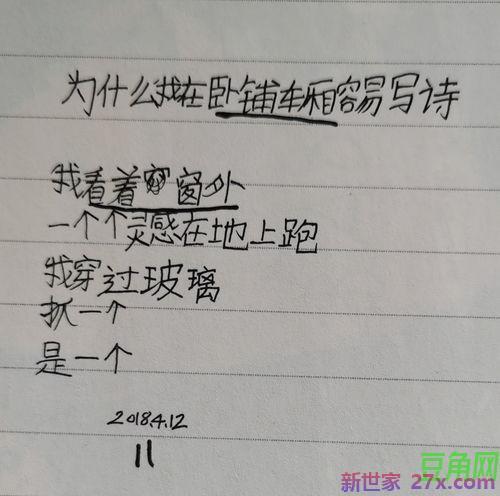 为什么我在卧铺车厢容易写诗
我看着窗外
一个个灵感在地上跑
我穿过玻璃
抓一个
是一个
2018.4.12
11
豆角网
新世家 27x.com